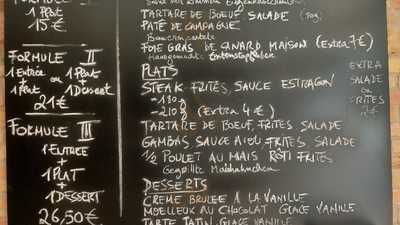 1 PLAT
15 €
FORMULE II
1 ENTRÉE OU 1 PLAT
+
1 PLAT 1 DESSERT
21 €
FORMULE III
1 ENTREE
+
1 PLAT
+
1 DESSERT
26,50 €
TARTARE DE BOEUF, SALADE
PATÉ DE CAMPAGNE
FOIE GRAS DE CANARD MAISON (Extra 7 €)
Hausgemachte
PLATS
STEAK FRITES, SAUCE ESTRAGON
-180g
-210g (Extra 4 €)
TARTARE DE BOEUF, FRITES SALADE
GAMBAS SAUCE AIOLI FRITES, SALADE
1/2 POULET AU MAIS RÔTI FRITES
Gegrilltes Maishähnchen
DESSERTS
CREME BRULEE A LA VANILLE
MOELLEUX AU CHOCOLAT GLACE VANILLE
TARTE TATIN GLACE VANILLE
EXTRA
SALADE
OU
FRITES